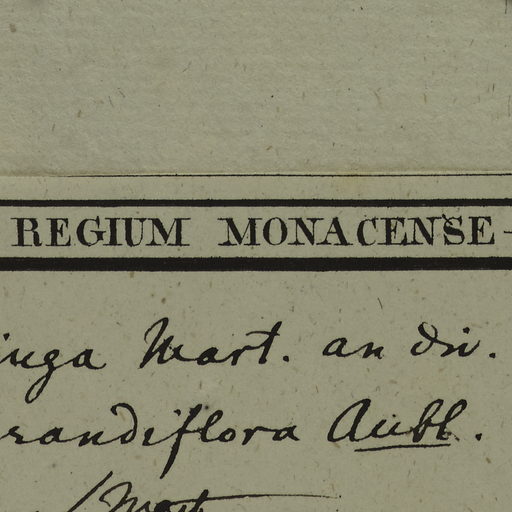 REGIUM MONACENSE
inga Mart. an div.
randiflora Aubl.
Mart